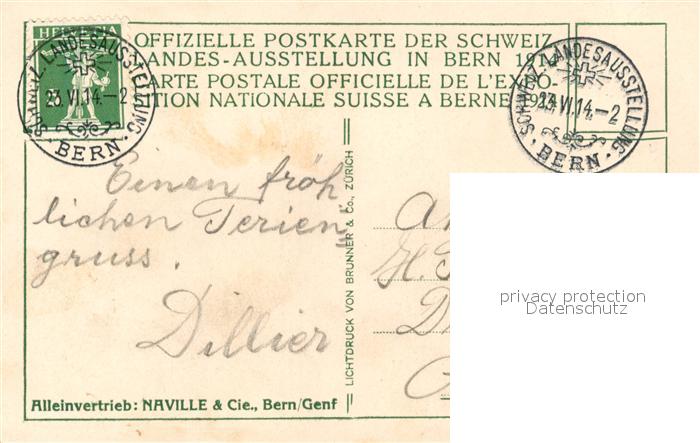 HELVETIA
OFFIZIELLE POSTKARTE DER SCHWEIZ.
LANDES-AUSSTELLUNG IN BERN 1914
CARTE POSTALE OFFICIELLE DE L'EXPO-
SITION NATIONALE SUISSE A BERNE 1914
SCHWEIZ. LANDESAUSSTELLUNG
23.VI.14.-2
· BERN ·
SCHWEIZ. LANDESAUSSTELLUNG
23.VI.14.-2
· BERN ·
Einen fröh
lichen Ferien=
gruss.
Dillier
LICHTDRUCK VON BRUNNER & Co., ZÜRICH
privacy protection
Datenschutz
Alleinvertrieb: NAVILLE & Cie., Bern/Genf